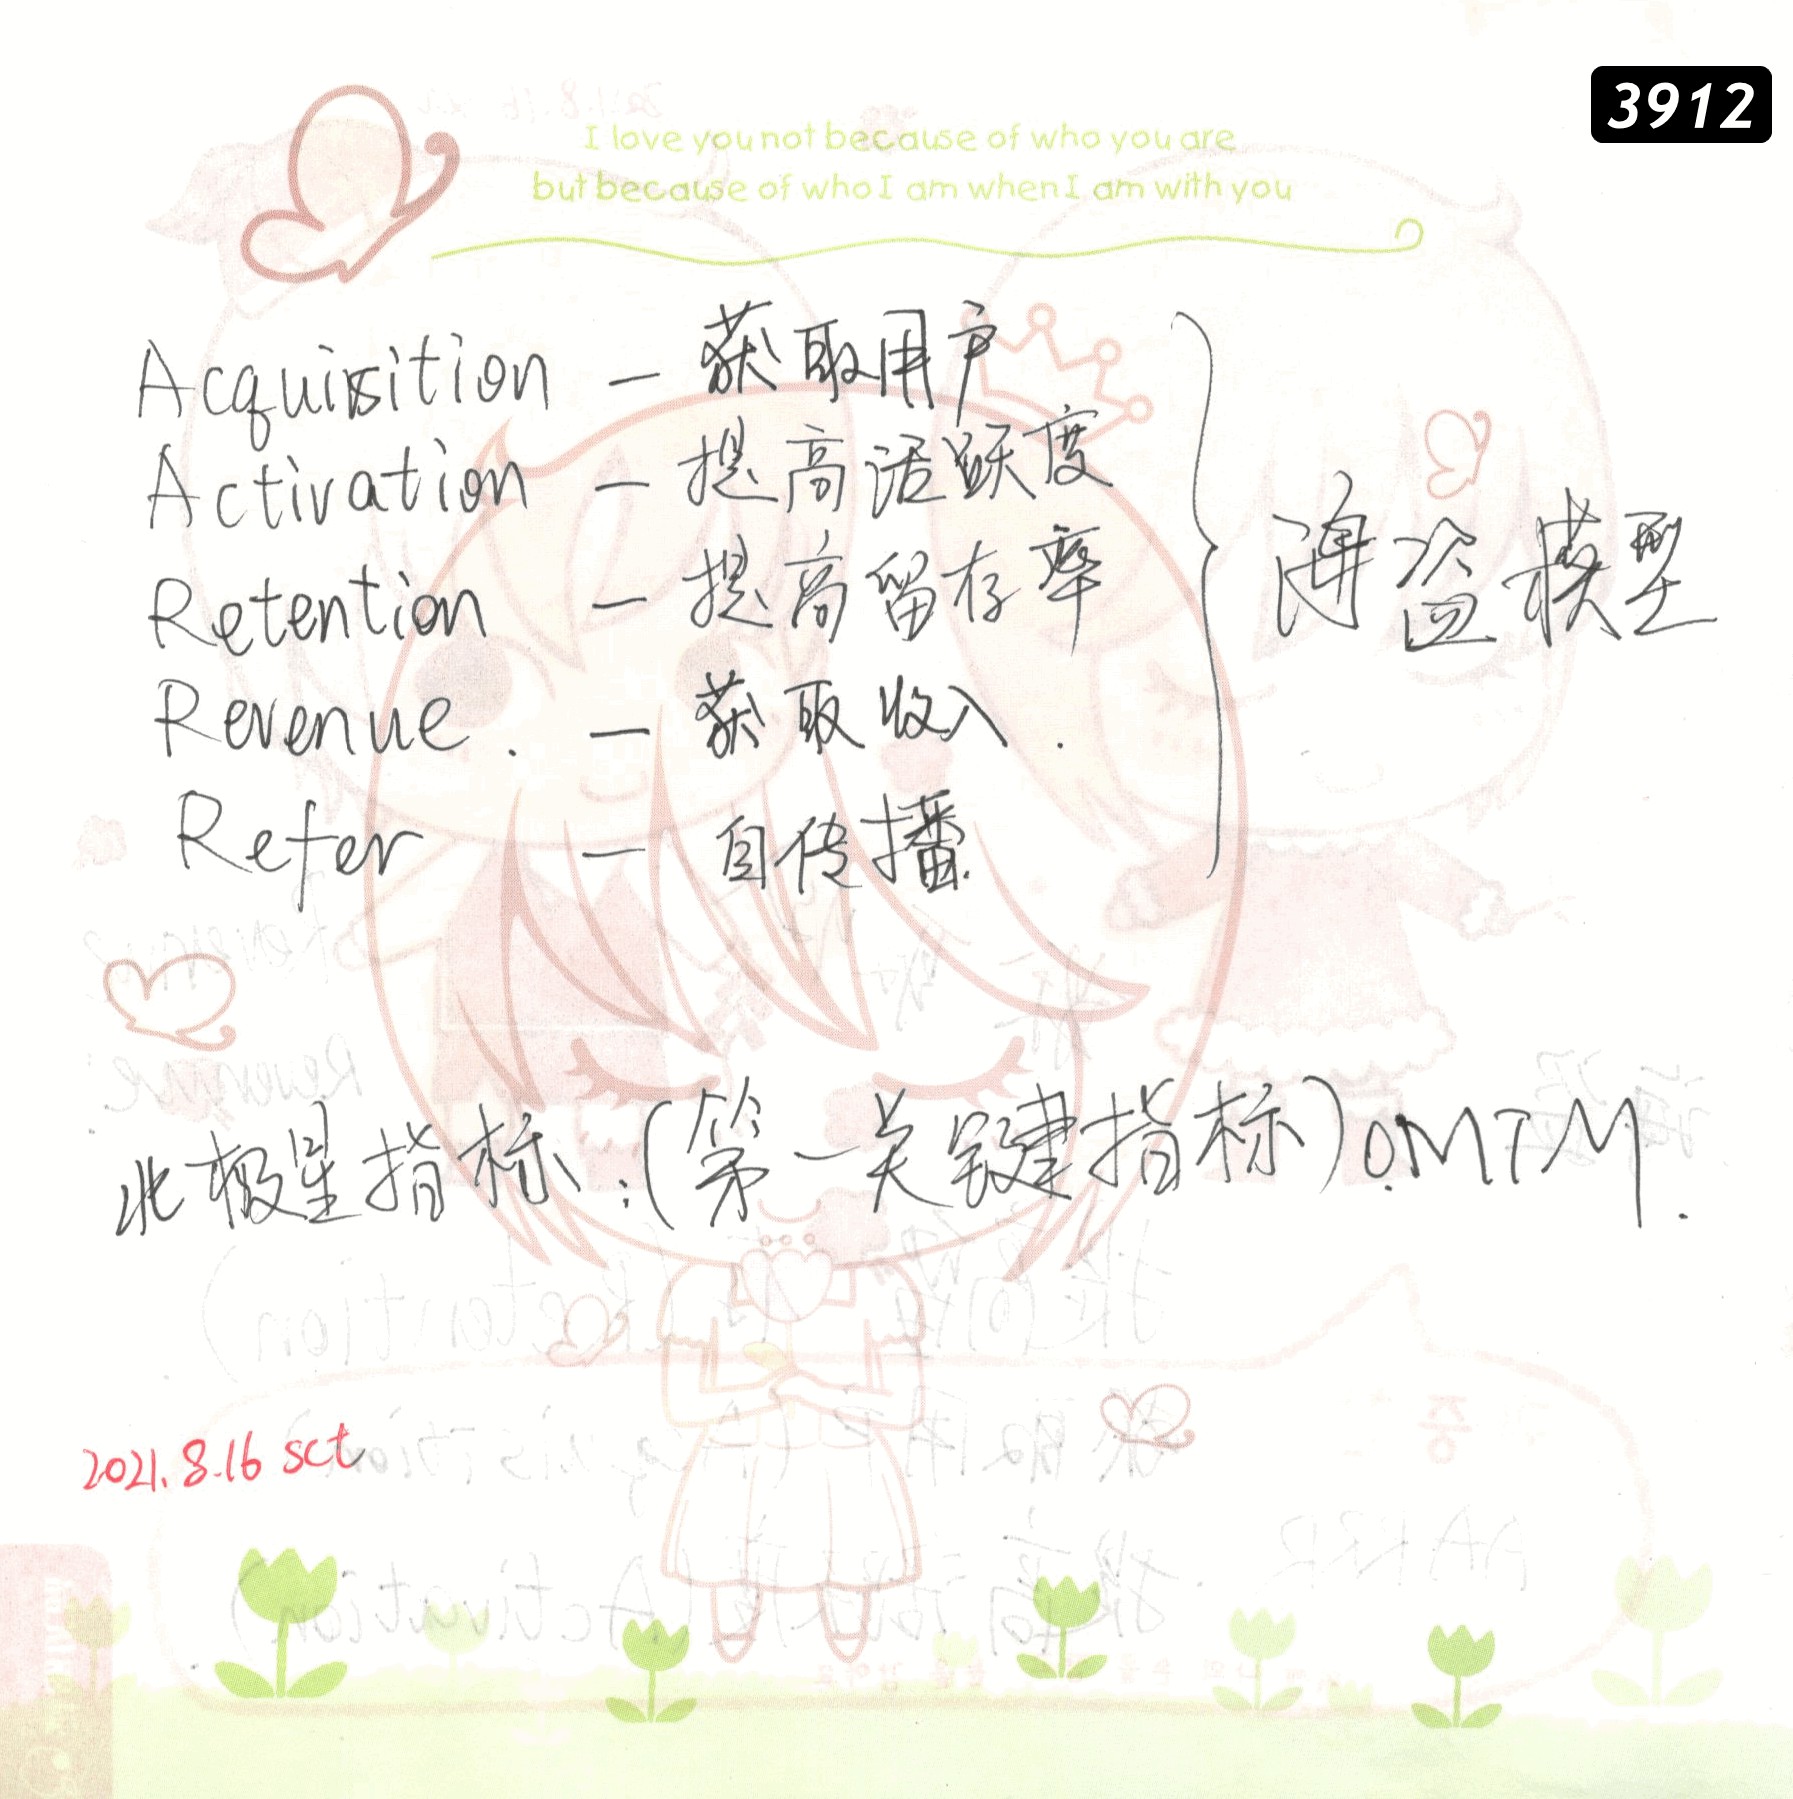 3912
I love you not because of who you are
but because of who I am when I am with you
Acquisition — 获取用户
Activation — 提高活跃度
Retention — 提高留存率
Revenue. — 获取收入.
Refer — 自传播.
海盗模型
北极星指标:(第一关键指标)OMTM.
2021.8.16 sct